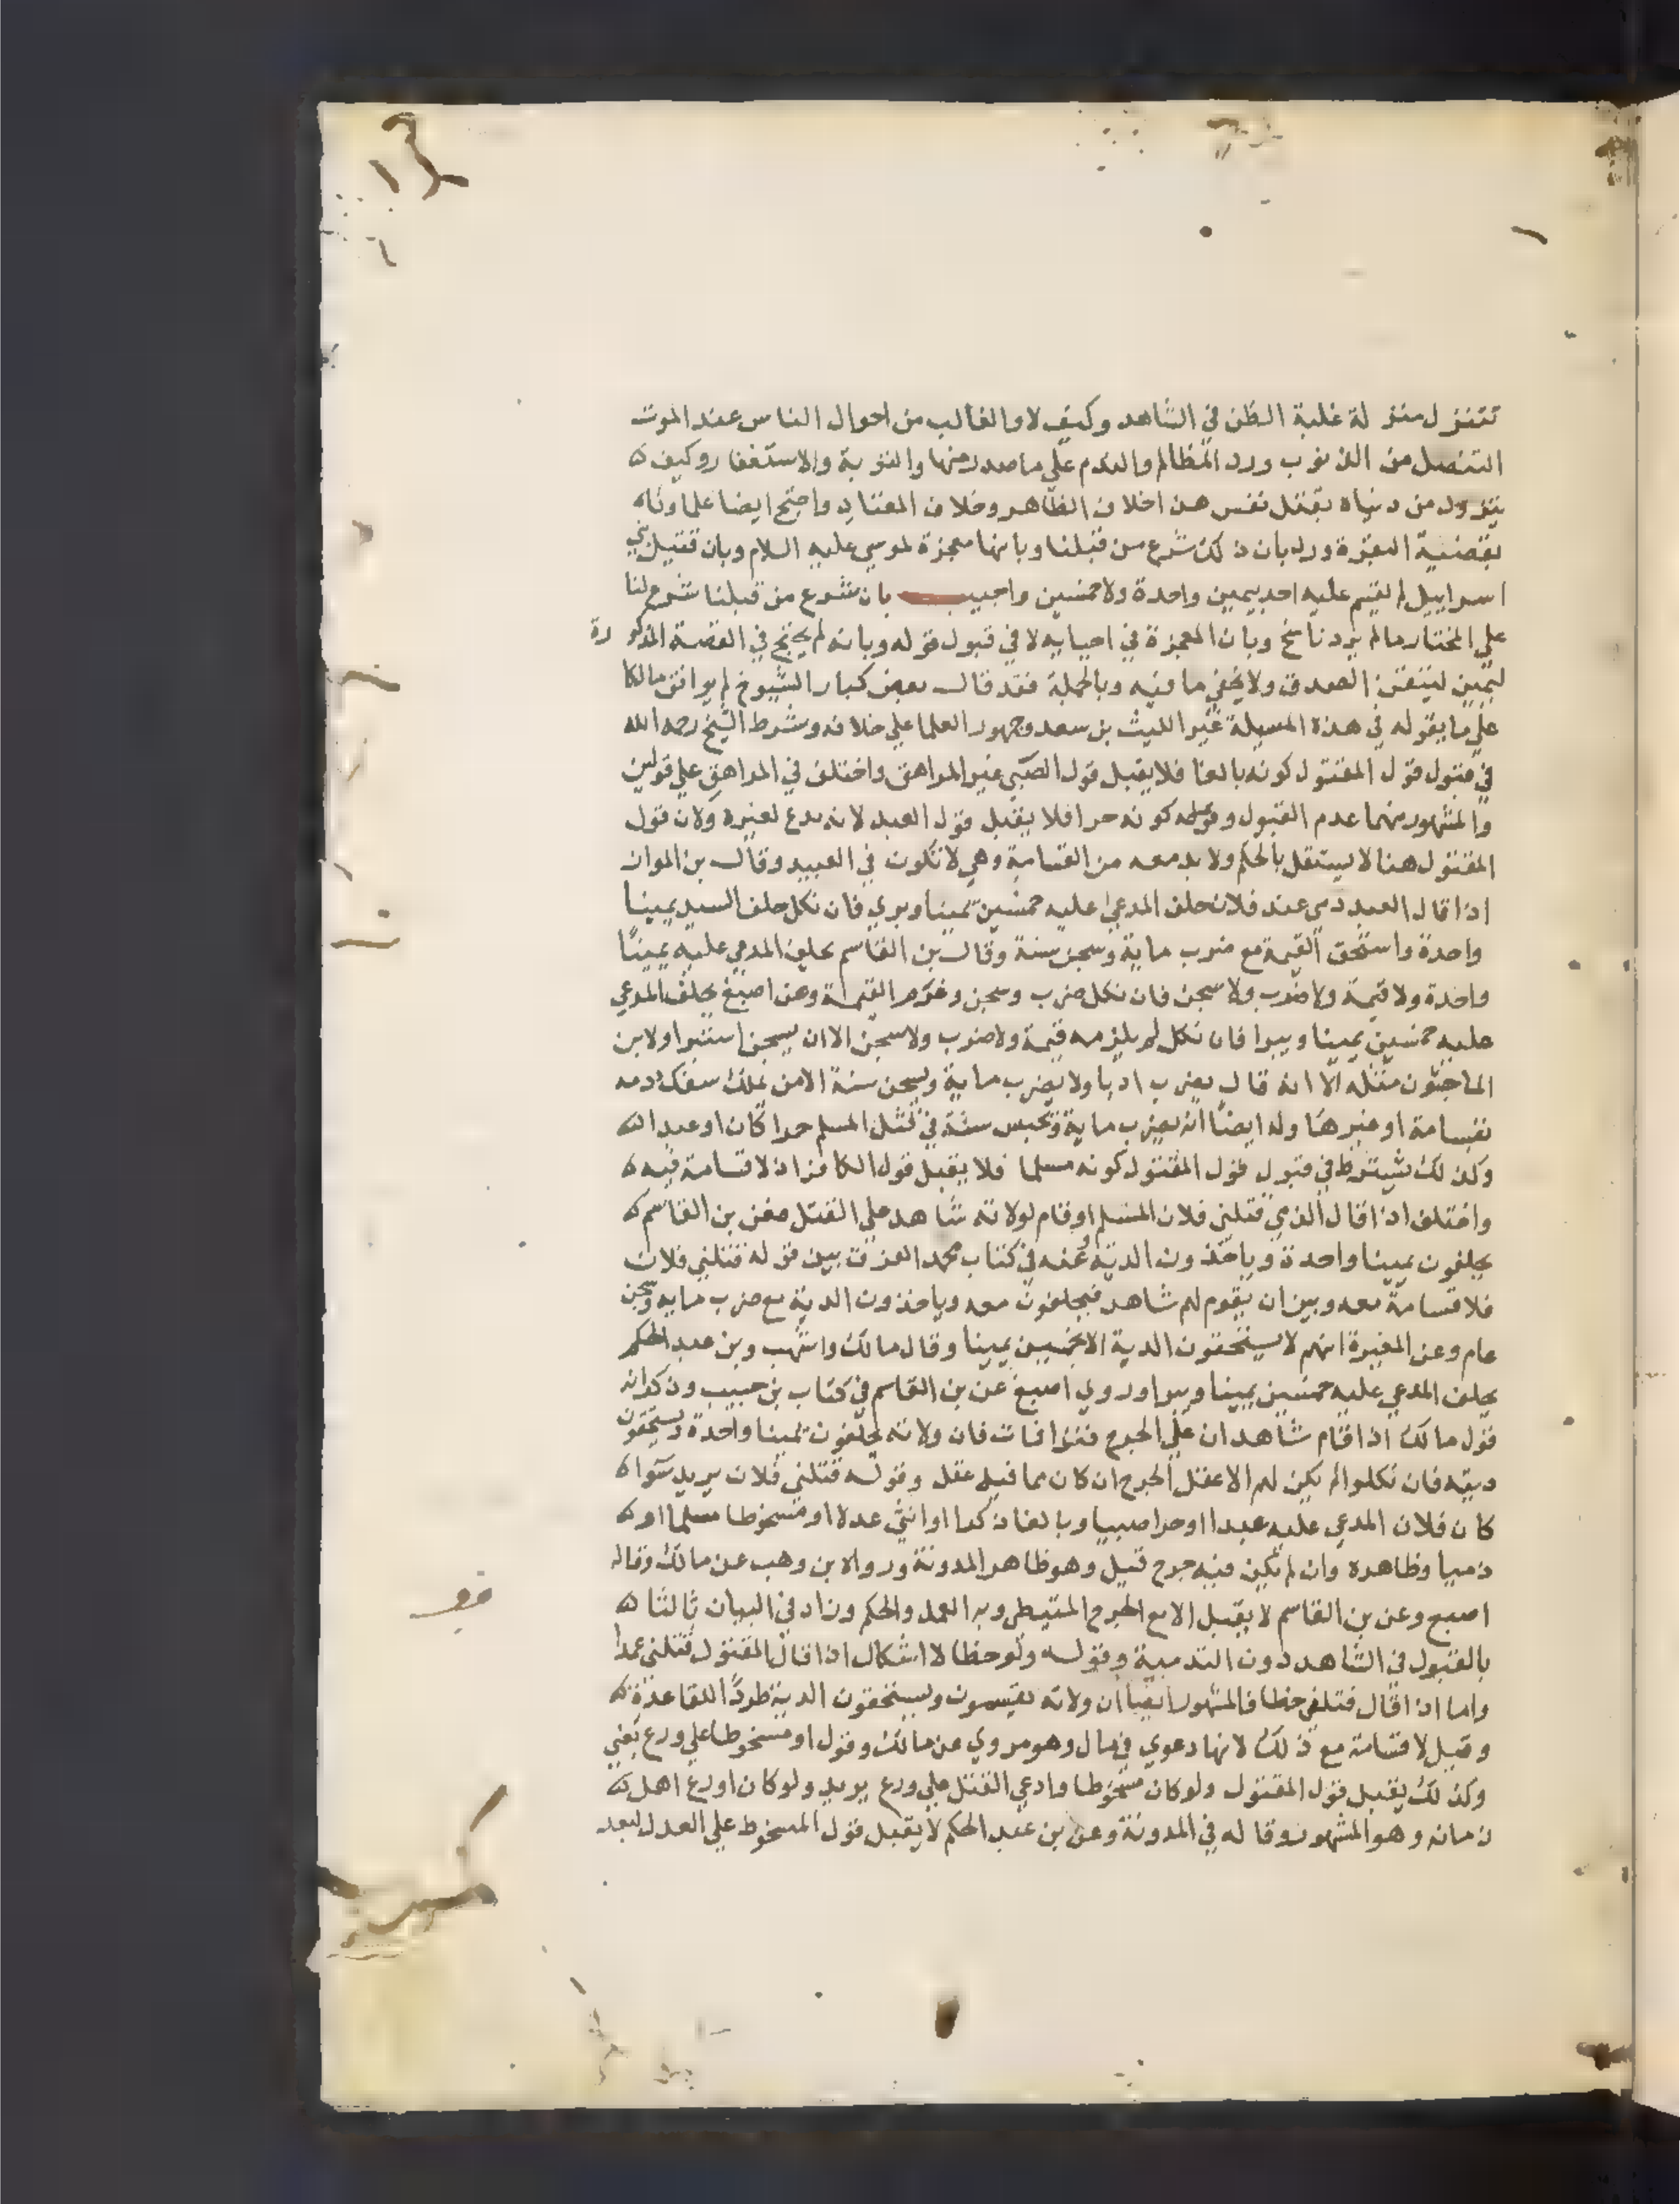 تتنزل منزلة غلبة الظن في الشاهد وكيف لا والغالب من احوال الناس عند الموت
التنصل من الذنوب ورد المظالم والندم علي ما صدر منها والتوبة والاستغفار وكيف
يتزود من دنياه بقتل نفس هذا خلاف الظاهر وخلاف المعتاد واحتج ايضا علماوناه
بقضية البقرة ورد بان ذلك شرع من قبلنا وبانها معجزة لموسي عليه السلام وبان قتيل بني
اسراييل لم يقسم عليه احد يمين واحدة ولا خمسين واجيب بان شرع من قبلنا شرع لنا
علي المختار مالم يرد ناسخ وبان المعجزة في احيايه لا في قبول قوله وبانه لم يحتج في القصة المذكورة
ليمين ليتقن الصدق ولا يخفي ما فيه وبالجملة فقد قال بعض كبار الشيوخ لم يوافق مالكا
علي ما يقوله في هذة المسيلة غير الليث بن سعد وجمهور العلما علي خلافه وشرط الشيخ رحمه الله
في قبول قول المقتول كونه بالغا فلا يقبل قول الصبي غير المراهق واختلف في المراهق علي قولين
والمشهور منهما عدم القبول وشرطه كونه حرا فلا يقبل قول العبد لانه مدع لغيره ولان قول
المقتول هنا لا يستقل بالحكم ولا بد معه من القسامة وهي لا تكون في العبيد وقال بن المواز
اذا قال العبد دمي عند فلان حلف المدعي عليه خمسين يمينا وبري فان نكل حلف السيد يمينا
واحدة واستحق القيمة مع ضرب ماية وسجن سنة وقال بن القاسم يحلف المدعي عليه يمينًا
واحدة ولا قيمة ولا ضرب ولا سجن فان نكل ضرب وسجن وغرم القيمة وعن اصبغ يحلف المدعي
عليه خمسين يمينا ويبرا فان نكل لم يلزمه قيمة ولا ضرب ولا سجن الا ان يسجن استبرا ولابن
الماجشون مثله الا انه قال يضرب ادبا ولا يضرب ماية ويسجن سنة الا من يملك سفك دمه
بقسامة او غيرها وله ايضًا انه يضرب ماية ويحبس سنة في قتل المسلم حرا كان او عبدا
وكذلك يشترط في قبول قول المقتول كونه مسلما فلا يقبل قول الكافر اذ لا قسامة فيه
واختلف اذا قال الذمي قتلني فلان المسلم او قام لولاته شاهد علي القتل فعن بن القاسم
يحلفون يمينا واحدة وياخذون الدية وعنه في كتاب محمد الفرق بين قوله قتلني فلان
فلا قسامة معه وبين ان يقوم لهم شاهد فيحلفون معه وياخذون الدية مع ضرب مايه وسجن
عام وعن المغيرة انهم لا يستحقون الدية الا بخمسين يمينا وقال مالك واشهب وبن عبد الحكم
يحلف المدعي عليه خمسين يمينا ويبرا وروي اصبغ عن بن القاسم في كتاب بن حبيب وذكر انه
قول مالك اذا قام شاهدان علي الجرح فنزا فمات فان ولاته يحلفون يمينا واحدة ويستحقون
ديته فان نكلوا لم يكن لهم الا عقل الجرح ان كان مما فيه عقل وقوله قتلني فلان يريد سواه
كان فلان المدعي عليه عبدا او حرا صبيا وبالغا ذكرا او انثي عدلا او مسخوطا مسلما او
ذميا وظاهره وان لم يكن فيه جرح قتيل وهو ظاهر المدونة ورواه بن وهب عن مالك وقاله
اصبع وعن بن القاسم لا يقبل الا مع الجرح وبه العمل والحكم وزاد في البيان ثالثا
بالقبول في الشاهد دون التدمية وقوله ولو خطا لا اشكال اذا قال المقتول قتلني عمدا
واما اذا قال قتلني خطا فالمشهور ايضا ان ولاته يقسمون ويستحقون الدية طردًا للقاعدة
وقيل لا قسامة مع ذلك لانها دعوي في مال وهو مروي عن مالك وقول او مسخوطا علي ورع يعني
وكذلك يقبل قول المقتول ولو كان مسخوطا وادعي القتل علي ورع يريد ولو كان اورع اهل
زمانه وهو المشهور وقاله في المدونة وعن بن عبد الحكم لا يقبل قول المسخوط علي العدل لبعد